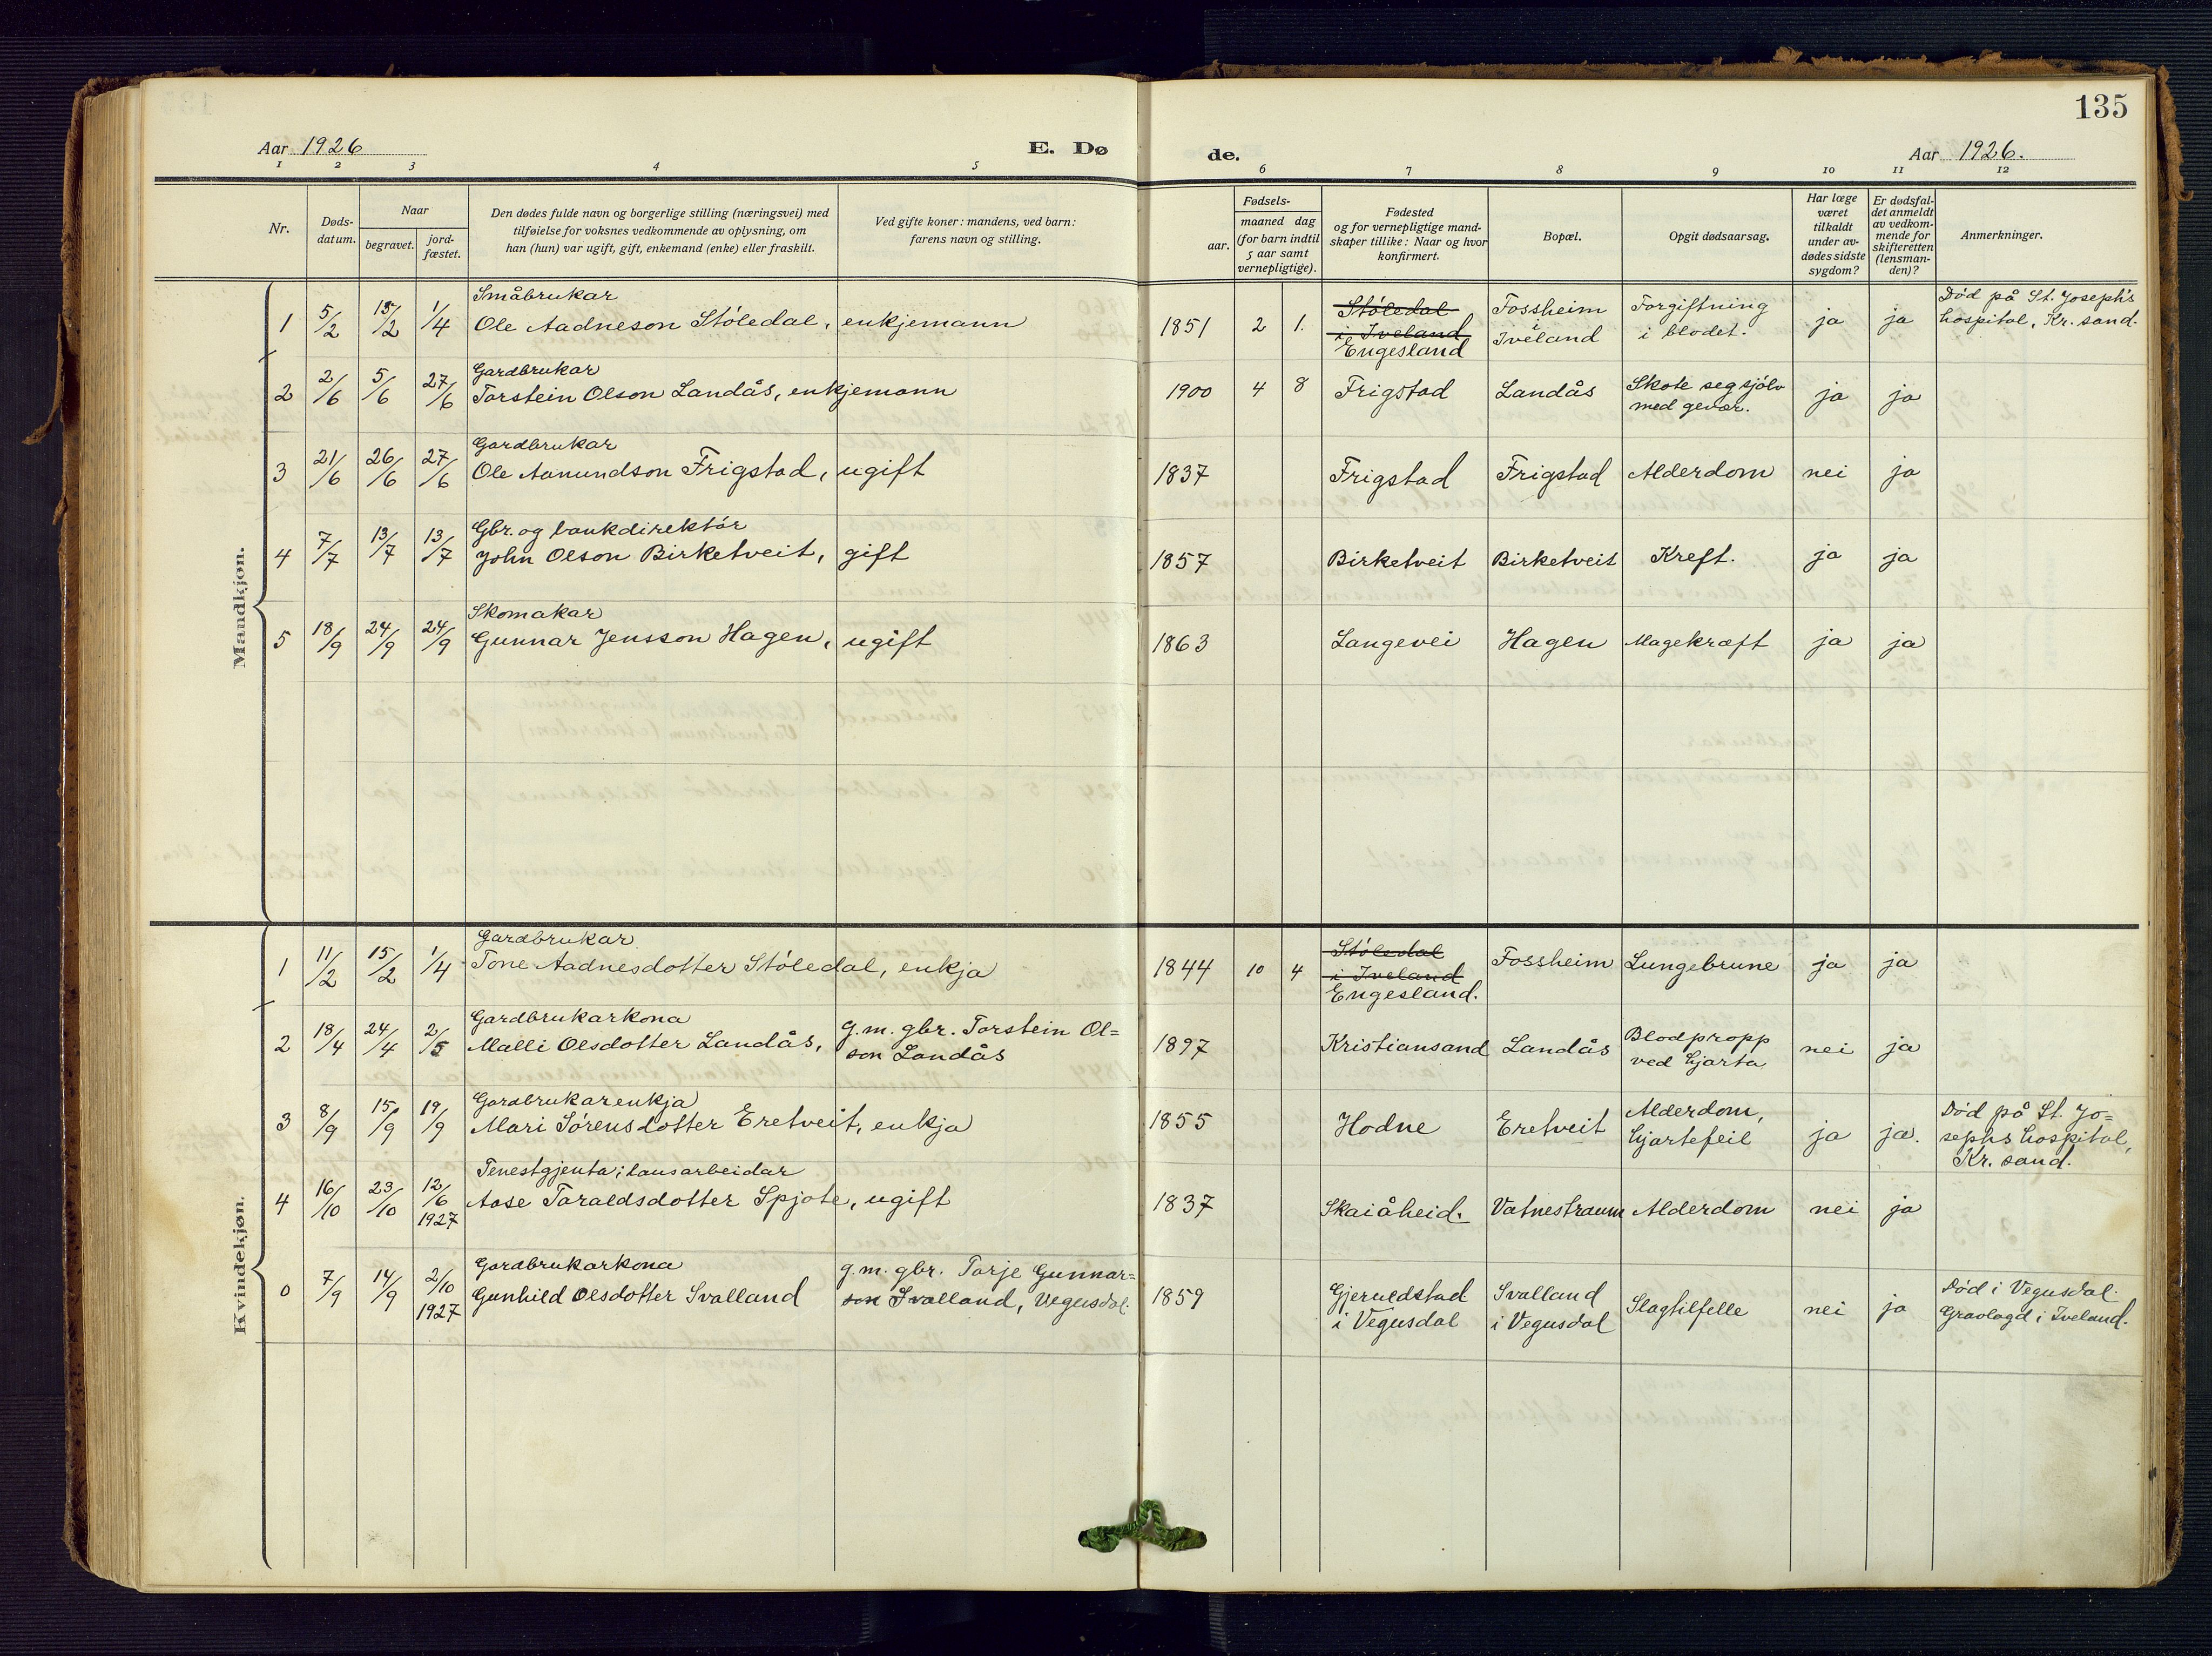 135
Aar 1926
E. Dø
de.
Aar 1926.
1 2 3 4 5 6 7 8 9 10 11 12
Nr.
Døds-
datum.
Naar
begravet.
jord-
fæstet.
Den dødes fulde navn og borgerlige stilling (næringsvei) med
tilføielse for voksnes vedkommende av oplysning, om
han (hun) var ugift, gift, enkemand (enke) eller fraskilt.
Ved gifte koner: mandens, ved barn:
farens navn og stilling.
Fødsels-
aar.
maaned dag
(for barn indtil
5 aar samt
vernepligtige).
Fødested
og for vernepligtige mand-
skaper tillike: Naar og hvor
konfirmert.
Bopæl.
Opgit dødsaarsag.
Har læge
været
tilkaldt
under av-
dødes sidste
sygdom?
Er dødsfal-
det anmeldt
av vedkom-
mende for
skifteretten
(lensman-
den)?
Anmerkninger.
Mandkjøn.
1 5/2 15/2 1/4
Småbrukar
Ole Aadneson Stóledal, enkjemann
1851 2 1.
Stóledal
i Iveland
Engesland
Fossheim
i
Iveland
Forgiftning
i blodet.
ja ja
Död på St. Joseph's
hospital, Kr. sand.
2 2/6 5/6 27/6
Gardbrukar
Torstein Olson Landås, enkjemann
1900 4 8 Frigstad Landås
Skote seg sjólv
med gevær.
ja ja
3 21/6 26/6 27/6
Gardbrukar
Ole Aamundson Frigstad, ugift
1837 Frigstad Frigstad Alderdom nei ja
4 7/7 13/7 13/7
Gbr. og bankdirektór
John Olson Birketveit, gift
1857 Birketveit Birketveit Kreft. ja ja
5 18/9 24/9 24/9
Skomakar
Gunnar Jensson Hagen, ugift
1863 Langevei Hagen Magekræft ja ja
Kvindekjøn.
1 11/2 15/2 1/4
Gardbrukar
Tone Aadnesdotter Stóledal, enkja
1844 10 4
Stóledal
i Iveland
Engesland.
Fossheim Lungebrune ja ja
2 18/4 24/4 2/5
Gardbrukarkona
Malli Olsdotter Landås,
g. m. gbr. Torstein Ol=
son Landås
1897 Kristiansand Landås
Blodpropp
ved hjarta
nei ja
3 8/9 15/9 19/9
Gardbrukarenkja
Mari Sórensdotter Eretveit, enkja
1855 Hodne Eretveit
Alderdom,
hjartefeil
ja ja.
Död på St. Jo=
sephs hospital,
Kr. sand.
4 16/10 23/10 12/6 1927
Tenestgjenta; lausarbeidar
Aase Taraldsdotter Spjote, ugift
1837 Skaiåheid. Vatnestraum Alderdom nei ja
0 7/9 14/9 2/10 1927
Gardbrukarkona
Gunhild Olsdotter Svalland
g. m. gbr. Tarje Gunnar=
son Svalland, Vegusdal.
1859
Gjeruldstad
i Vegusdal
Svalland
i Vegusdal
Slagtilfelle nei ja
Död i Vegusdal.
Gravlagd i Iveland.